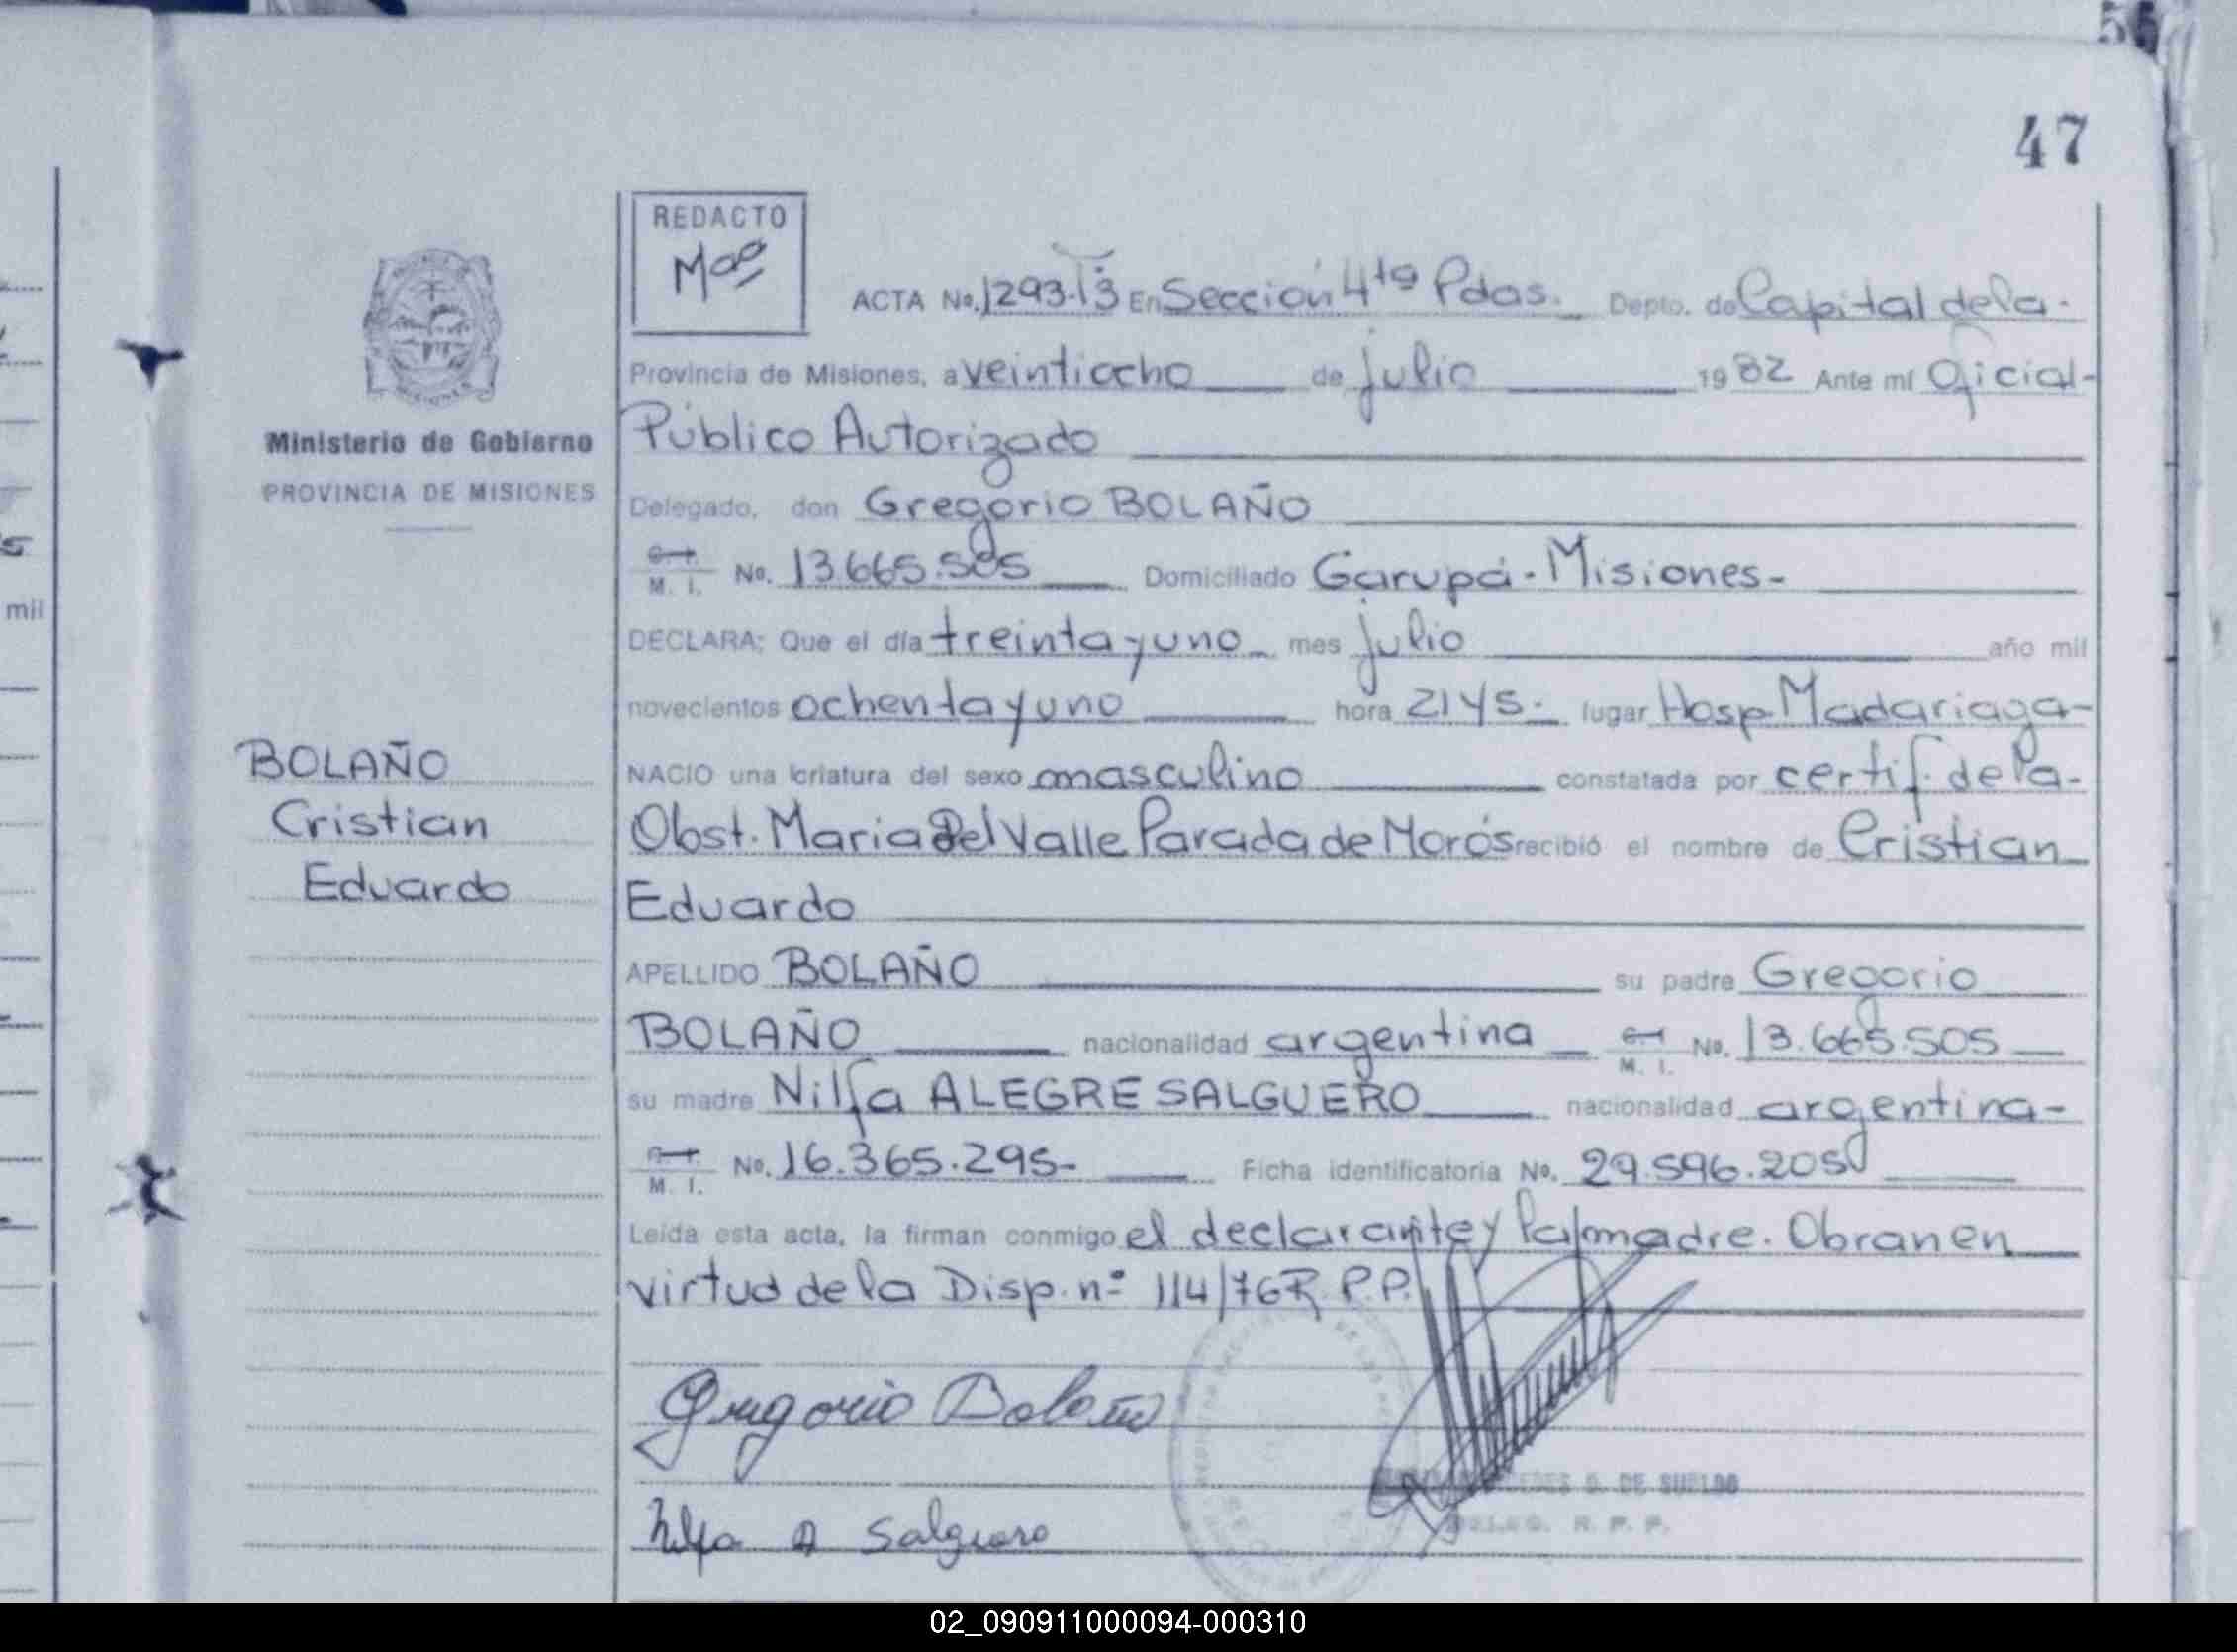 47
REDACTO
ACTA No. 1293-T3 En Sección 4ta Pdas. Depto. de Capital de la-
Provincia de Misiones, a veintiocho de julio 1982 Ante mí Oficial-
Público Autorizado
Ministerio de Gobierno
PROVINCIA DE MISIONES
Delegado, don Gregorio BOLAÑO
M. I. No. 13.665.505 Domiciliado Garupá-Misiones-
DECLARA; Que el día treinta y uno mes julio año mil
novecientos ochenta y uno hora 21 45. lugar Hosp Madariaga-
BOLAÑO
Cristian
Eduardo
NACIO una criatura del sexo masculino constatada por certif. de la-
Obst. Maria del Valle Parada de Morós recibió el nombre de Cristian
Eduardo
APELLIDO BOLAÑO su padre Gregorio
BOLAÑO nacionalidad argentina M. I. No. 13.665.505
su madre Nilfa ALEGRE SALGUERO nacionalidad argentina-
M. I. No. 16.365.295- Ficha identificatoria No. 29.596.205
Leída esta acta, la firman conmigo el declarante y la madre. Obran en
virtud de la Disp. nº 114/76 R.P.P.
Gregorio Bolaño
Nilfa A Salguero
DE SUELDO
R. P. P.
mil
02_090911000094-000310